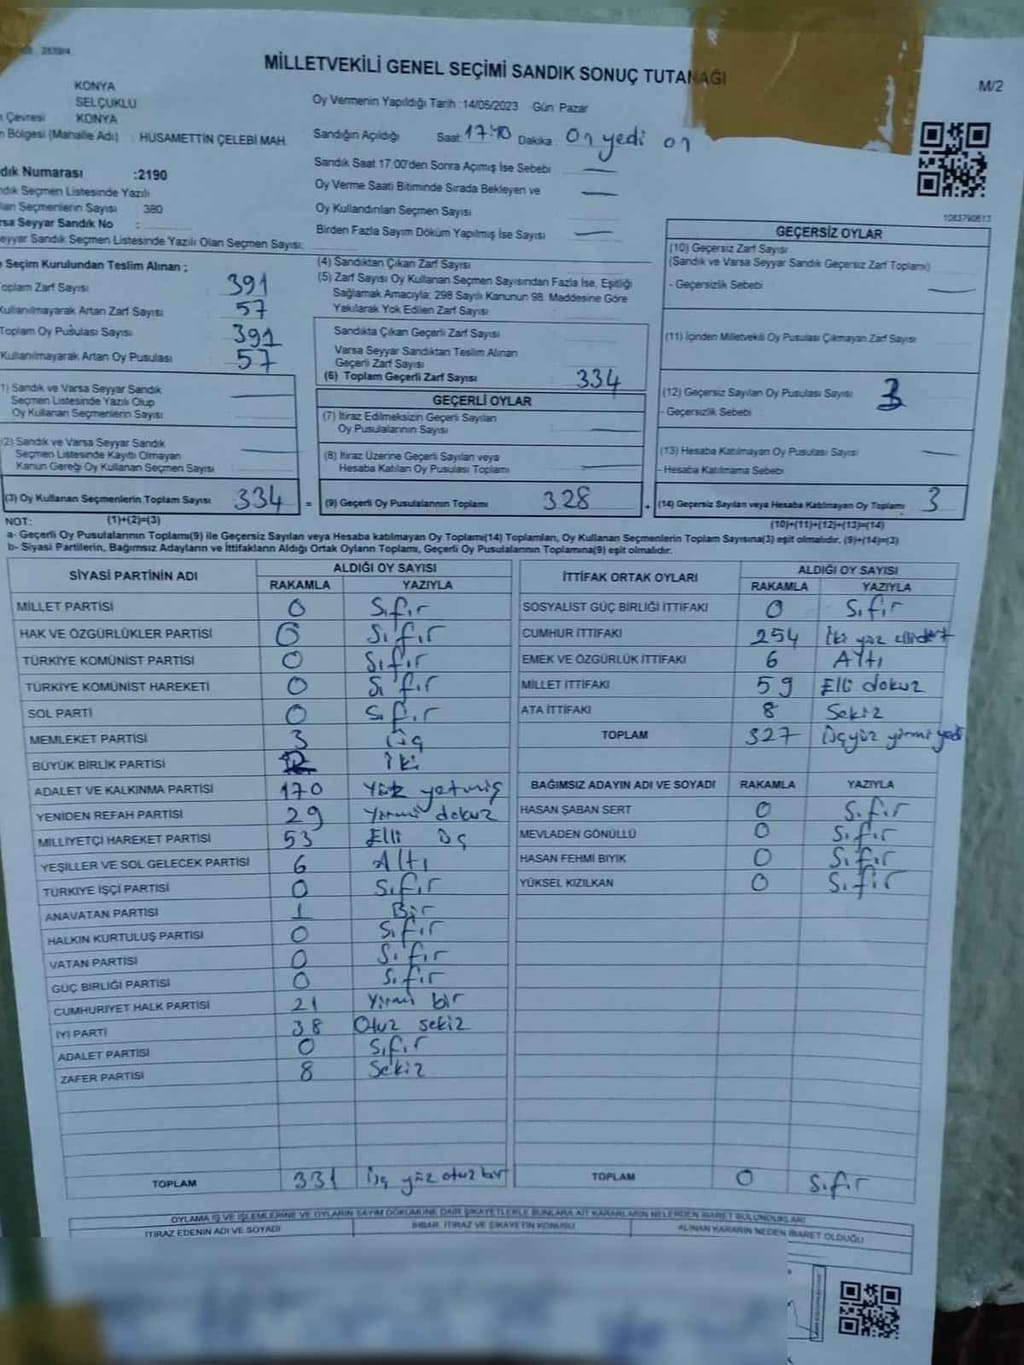 MİLLETVEKİLİ GENEL SEÇİMİ SANDIK SONUÇ TUTANAĞI
M/2
KONYA
SELÇUKLU
Çevresi KONYA
Bölgesi (Mahalle Adı) : HÜSAMETTİN ÇELEBİ MAH.
Oy Vermenin Yapıldığı Tarih :14/05/2023 Gün Pazar
Sandığın Açıldığı Saat: 17:10 Dakika: On yedi on
Sandık Saat 17:00'den Sonra Açmış İse Sebebi —
Oy Verme Saati Bitiminde Sırada Bekleyen ve —
Oy Kullandırılan Seçmen Sayısı
Birden Fazla Sayım Döküm Yapılmış İse Sayısı —
dık Numarası :2190
dık Seçmen Listesinde Yazılı
lan Seçmenlerin Sayısı 380
rsa Seyyar Sandık No :
eyyar Sandık Seçmen Listesinde Yazılı Olan Seçmen Sayısı:
Seçim Kurulundan Teslim Alınan ;
oplam Zarf Sayısı 391
Kullanılmayarak Artan Zarf Sayısı 57
Toplam Oy Pusulası Sayısı 391
Kullanılmayarak Artan Oy Pusulası 57
1) Sandık ve Varsa Seyyar Sandık
Seçmen Listesinde Yazılı Olup
Oy Kullanan Seçmenlerin Sayısı —
(2) Sandık ve Varsa Seyyar Sandık
Seçmen Listesinde Kayıtlı Olmayan
Kanun Gereği Oy Kullanan Seçmen Sayısı —
(3) Oy Kullanan Seçmenlerin Toplam Sayısı 334 =
(1)+(2)=(3)
(4) Sandıktan Çıkan Zarf Sayısı
(5) Zarf Sayısı Oy Kullanan Seçmen Sayısından Fazla İse, Eşitliği
Sağlamak Amacıyla; 298 Sayılı Kanunun 98. Maddesine Göre
Yakılarak Yok Edilen Zarf Sayısı
Sandıkta Çıkan Geçerli Zarf Sayısı
Varsa Seyyar Sandıktan Teslim Alınan
Geçerli Zarf Sayısı
(6) Toplam Geçerli Zarf Sayısı 334
GEÇERLİ OYLAR
(7) İtiraz Edilmeksizin Geçerli Sayılan
Oy Pusulalarının Sayısı —
(8) İtiraz Üzerine Geçerli Sayılan veya
Hesaba Katılan Oy Pusulası Toplamı —
(9) Geçerli Oy Pusulalarının Toplamı 328 +
1083790613
GEÇERSİZ OYLAR
(10) Geçersiz Zarf Sayısı
(Sandık ve Varsa Seyyar Sandık Geçersiz Zarf Toplamı)
- Geçersizlik Sebebi —
(11) İçinden Milletvekili Oy Pusulası Çıkmayan Zarf Sayısı
(12) Geçersiz Sayılan Oy Pusulası Sayısı 3
- Geçersizlik Sebebi
(13) Hesaba Katılmayan Oy Pusulası Sayısı —
- Hesaba Katılmama Sebebi
(14) Geçersiz Sayılan veya Hesaba Katılmayan Oy Toplamı 3
(10)+(11)+(12)+(13)=(14)
NOT:
a- Geçerli Oy Pusulalarının Toplamı(9) ile Geçersiz Sayılan veya Hesaba katılmayan Oy Toplamı(14) Toplamları, Oy Kullanan Seçmenlerin Toplam Sayısına(3) eşit olmalıdır. (9)+(14)=(3)
b- Siyasi Partilerin, Bağımsız Adayların ve İttifakların Aldığı Ortak Oyların Toplamı, Geçerli Oy Pusulalarının Toplamına(9) eşit olmalıdır.
SİYASİ PARTİNİN ADI ALDIĞI OY SAYISI
RAKAMLA YAZIYLA
MİLLET PARTİSİ 0 Sıfır
HAK VE ÖZGÜRLÜKLER PARTİSİ 0 Sıfır
TÜRKİYE KOMÜNİST PARTİSİ 0 Sıfır
TÜRKİYE KOMÜNİST HAREKETİ 0 Sıfır
SOL PARTİ 0 Sıfır
MEMLEKET PARTİSİ 3 Üç
BÜYÜK BİRLİK PARTİSİ 2 İki
ADALET VE KALKINMA PARTİSİ 170 Yüz yetmiş
YENİDEN REFAH PARTİSİ 29 Yirmi dokuz
MİLLİYETÇİ HAREKET PARTİSİ 53 Elli üç
YEŞİLLER VE SOL GELECEK PARTİSİ 6 Altı
TÜRKİYE İŞÇİ PARTİSİ 0 Sıfır
ANAVATAN PARTİSİ 1 Bir
HALKIN KURTULUŞ PARTİSİ 0 Sıfır
VATAN PARTİSİ 0 Sıfır
GÜÇ BİRLİĞİ PARTİSİ 0 Sıfır
CUMHURİYET HALK PARTİSİ 21 Yirmi bir
İYİ PARTİ 38 Otuz sekiz
ADALET PARTİSİ 0 Sıfır
ZAFER PARTİSİ 8 Sekiz
TOPLAM 331 Üç yüz otuz bir
İTTİFAK ORTAK OYLARI ALDIĞI OY SAYISI
RAKAMLA YAZIYLA
SOSYALİST GÜÇ BİRLİĞİ İTTİFAKI 0 Sıfır
CUMHUR İTTİFAKI 254 İki yüz ellidört
EMEK VE ÖZGÜRLÜK İTTİFAKI 6 Altı
MİLLET İTTİFAKI 59 Elli dokuz
ATA İTTİFAKI 8 Sekiz
TOPLAM 327 Üçyüz yirmi yedi
BAĞIMSIZ ADAYIN ADI VE SOYADI RAKAMLA YAZIYLA
HASAN ŞABAN SERT 0 Sıfır
MEVLADEN GÖNÜLLÜ 0 Sıfır
HASAN FEHMİ BIYIK 0 Sıfır
YÜKSEL KIZILKAN 0 Sıfır
TOPLAM 0 Sıfır
OYLAMA İŞ VE İŞLEMLERİNE VE OYLARIN SAYIM DÖKÜMÜNE DAİR ŞİKAYETLERLE BUNLARA AİT KARARLARIN NELERDEN İBARET BULUNDUKLARI
İTİRAZ EDENİN ADI VE SOYADI İHBAR, İTİRAZ VE ŞİKAYETİN KONUSU ALINAN KARARIN NEDEN İBARET OLDUĞU